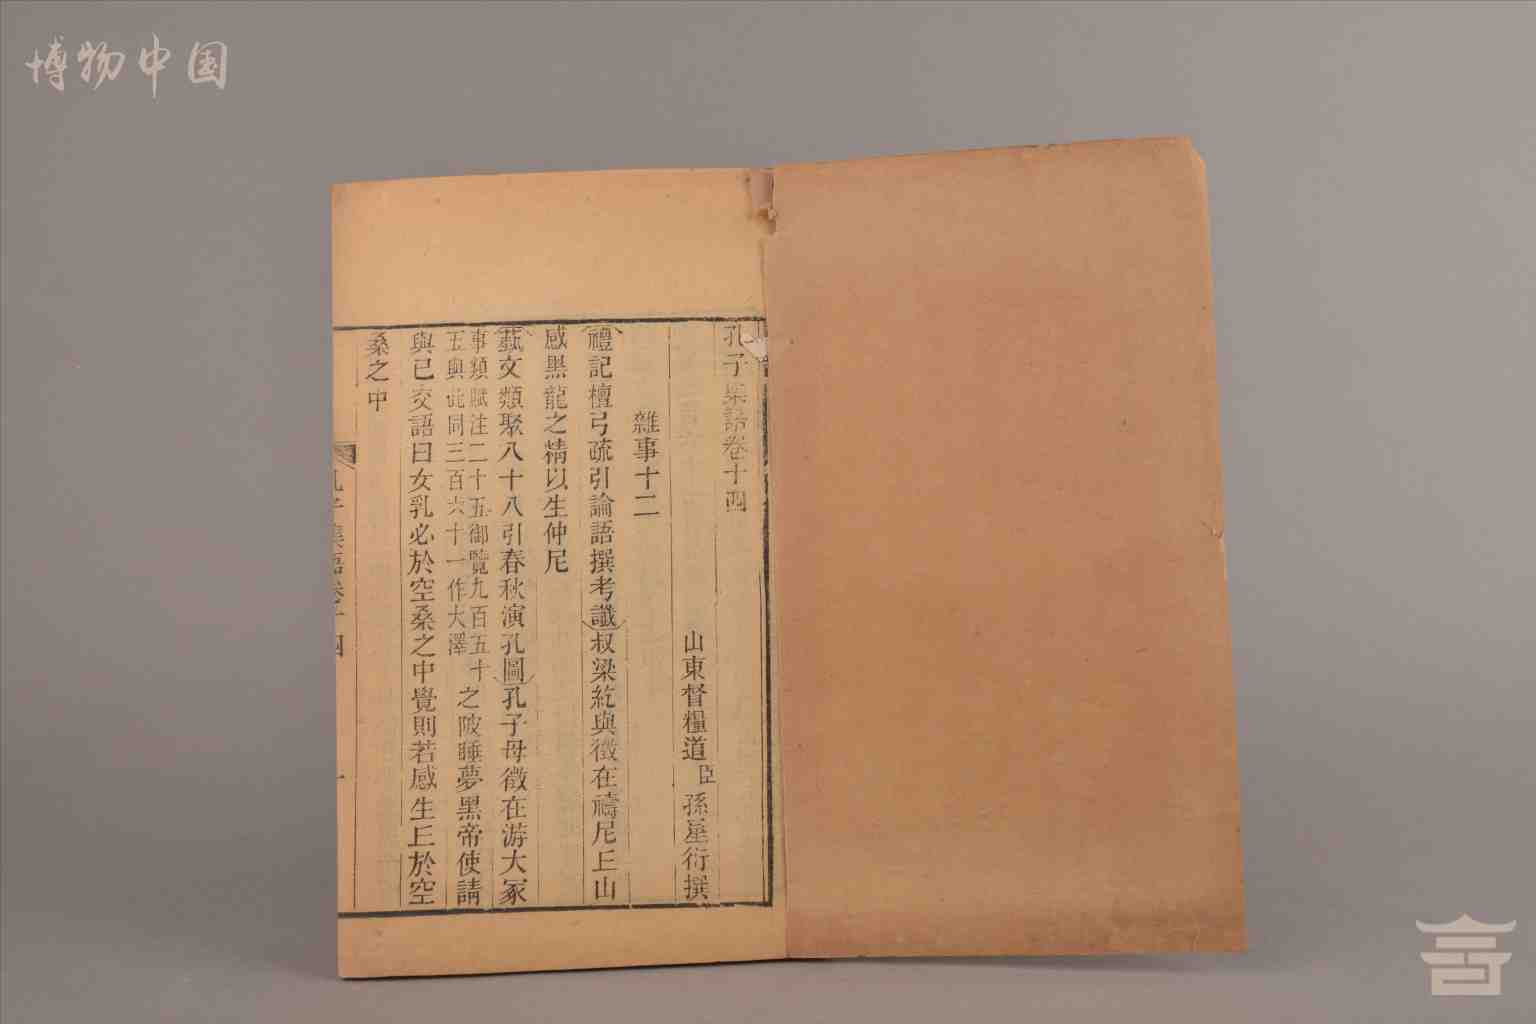 博物中国
孔子集語卷十四
山東督糧道臣孫星衍撰
雜事十二
禮記檀弓疏引論語撰考讖叔梁紇與徵在禱尼丘山
感黑龍之精以生仲尼
藝文類聚八十八引春秋演孔圖孔子母徵在游大冢
事類賦注二十五御覽九百五十
五與此同三百六十一作大澤
之陂睡夢黑帝使請
與已交語曰女乳必於空桑之中覺則若感生丘於空
桑之中
孔子集語卷十四
一